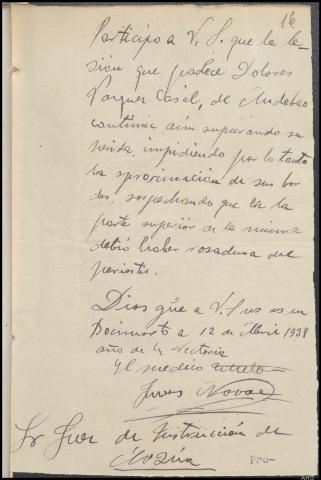 16
Participo a V. S. que la le-
sión que padece Dolores
Vazquez Casal, de Andabao
continúa aún supurando su
herida, impidiendo por lo tanto
la aproximación de sus bor-
des, sospechando que en la
parte superior de la misma
debió haber rozadura del
periostio.
Dios gũe a V. S.
a 12 de Abril 1938
año de la Victoria
El medico
Novoa
Sr Juez de Instrucción de
Arzúa